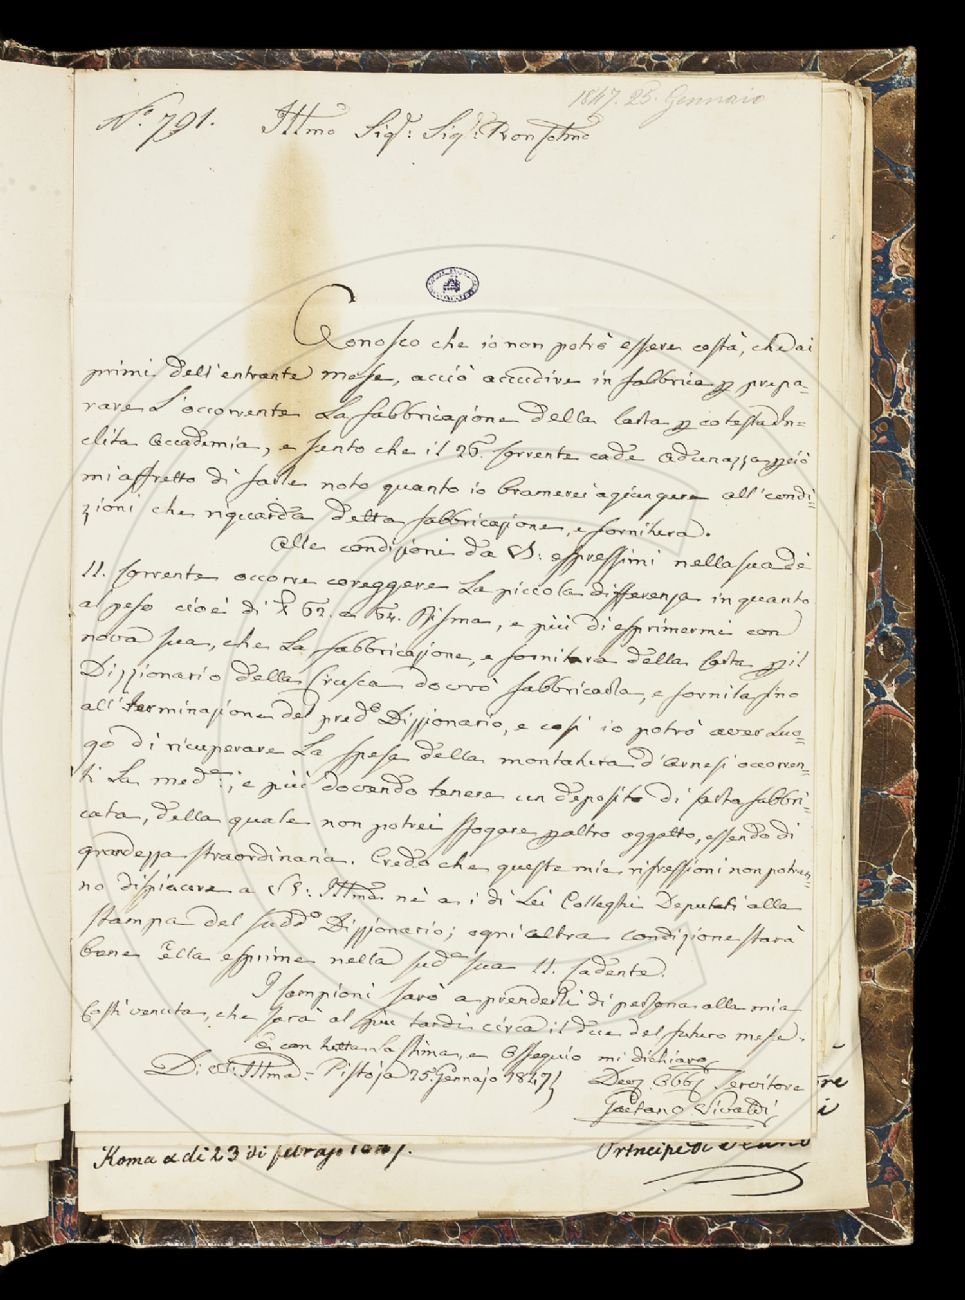 1847. 25. Gennaio
N.° 791. Ittmo Sig.r: Sig.r: Pron Colmo
Conosco che io non potrò essere costà, che ai
primi dell'entrante mese, acciò accudire in fabbrica per prepa=
rare L'occorrente La fabbricazione della Carta per cotesta In=
clita Accademia, e sento che il 26. Corrente cade Adunazza perciò
mi affretto di farle noto quanto io bramerei agiungere all'condi=
zioni che riguarda detta fabbricazione, e fornitura.
Alle condizioni da VS: espressimi nella sua de
11. Corrente occorre coreggere La piccola differenza in quanto
al peso cioè di 62. a 64. Risma, e più di esprimermi con
nova sua, che La fabbricazione, e fornitura della Carta per il
Dizzionario della Crusca dovrò fabbricarla, e fornirla fino
all'Terminazione del pred.o Dizzionario, e così io potrò aver Luo=
go di ricuperare La spesa della montatura d'Arnesi occorren=
ti La med.a; e più dovendo tenere un deposito di Carta fabbri=
cata, della quale non potrei sfogare per altro oggetto, essendo di
grandezza straordinaria. Credo che queste mie rifressioni non potran=
no dispiacere a VS: Ittma nè a i di Lei Colleghi Deputati alla
Stampa del sudd.o Dizzionario; ogni altra condizione starà
bene Ella esprime nella sud.a sua 11. Cadente.
I Campioni sarò a prenderli di persona alla mia
Costì venuta, che sarà al più tardi circa il due del futuro mese.
E con tutta La stima, e Ossequio mi dichiaro
Di VS: Ittma = Pistoja 25. Gennajo 1847
Devz Obbz Servitore
Gaetano Vivaldi
Roma a di 23 di
Principe di